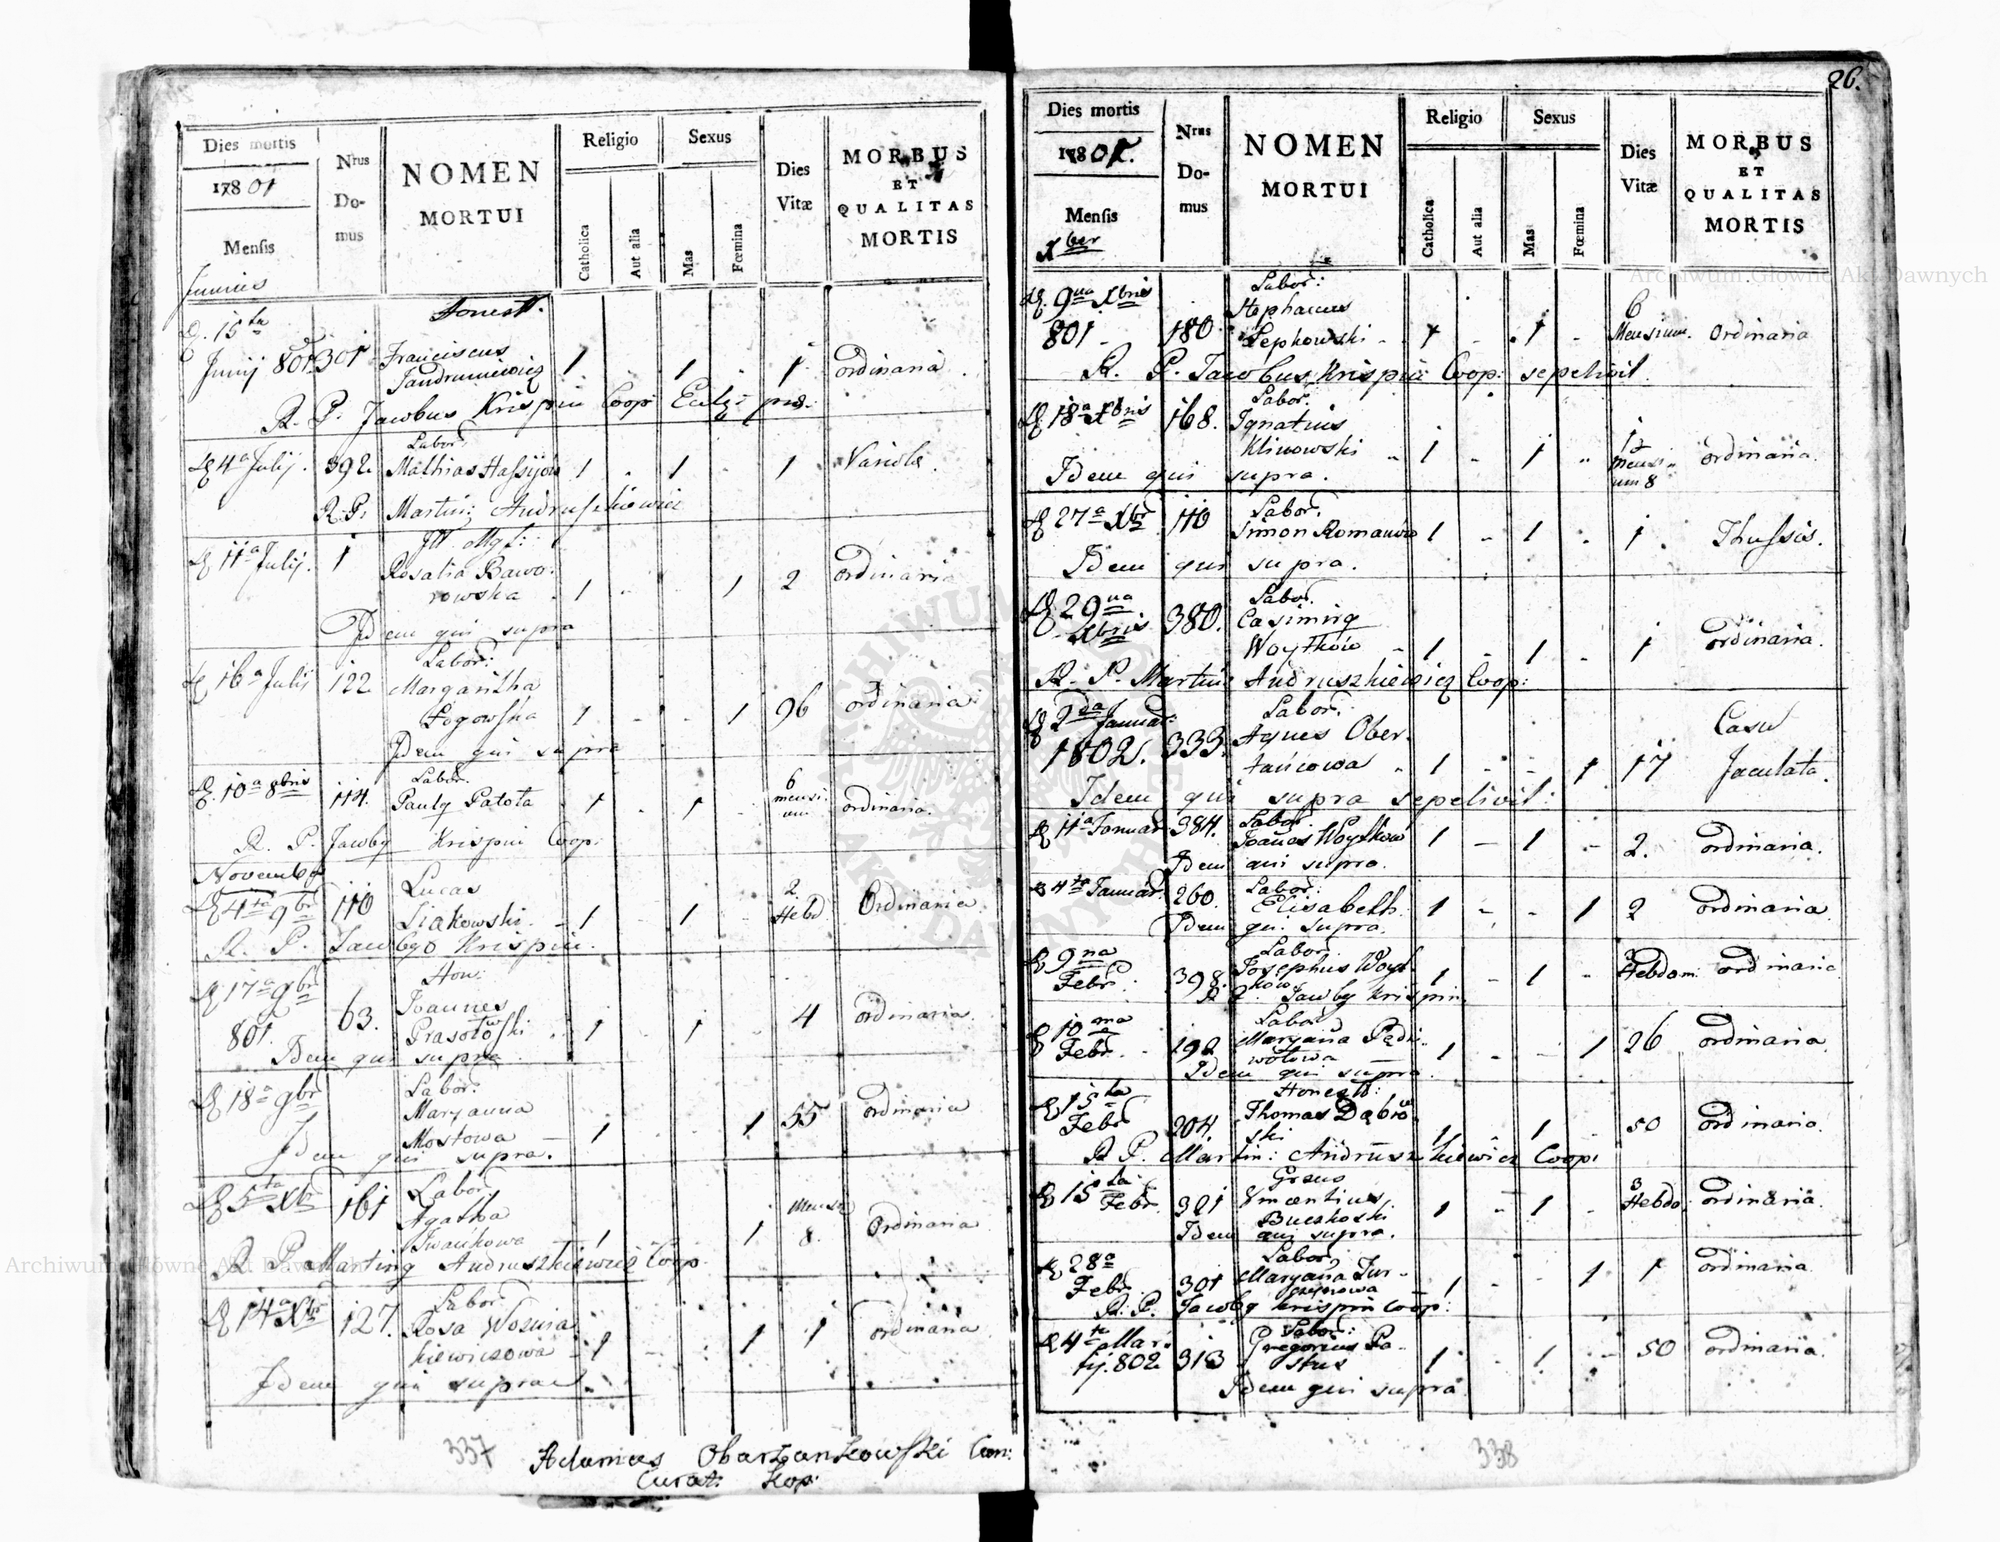 Dies mortis
1780 01
Mensis
Junius
Nrus
Do-
mus
NOMEN
MORTUI
Religio
Catholica
Aut alia
Sexus
Mas
Fœmina
Dies
Vitæ
MORBUS
ET
QUALITAS
MORTIS
Honest.
D. 15ta
Junij 801 301 Franciscus 1 1 1 ordinaria
R. P. Jacobus Krispin Coop:
Labor.
4a Julij. 392 Mathias 1 - 1 - 1 Variola.
R. P. Martin: Andruszkiewicz
11a Julij. 1
Rosalia Bawo-
rowska 1 - - 1 2 ordinaria
Idem qui supra
Labor:
16a Julij 122 Margaritha
Łogowska 1 - - 1 96 ordinaria
Idem qui supra
Labor.
10a 8bris 114. Pauly Patota 1 - 1 - 6 mensi- um ordinaria.
R. P. Jacoby Krispin Coop:
Novembr
4ta 9br 110 Lucas
Siakowski - 1 - 1 - 2 Hebd. Ordinaria
R. P. Krispin.
Hon:
17a 9br
801. 63. Joannes
Prasołowski 1 1 - 4 ordinaria
Idem qui supra
18a 9br Labor.
Maryanna
Mostowa 1 1 55 ordinaria
Idem qui supra.
5ta Xbr 161 Labor
Agatha
Iwankowa 1 1 Mensi 8. Ordinaria
R. P. Marting Andruszkiewicz Coop
14a Xbr 127. Labor
Rosa Woznia
kiewiczowa - 1 1 1 ordinaria
Idem qui supra
337
Adamus Obarzankowski Can:
Curat: Kop:
26.
Dies mortis
1780 01.
Mensis
Xber
Nrus
Do-
mus
NOMEN
MORTUI
Religio
Catholica
Aut alia
Sexus
Mas
Fœmina
Dies
Vitæ
MORBUS
ET
QUALITAS
MORTIS
Labor:
9na Xbris Stephanus 6
801. 180 Lepkowski - 1 - 1 - Mensium. ordinaria
R. P. Jacobus Krispin Coop: sepelivit.
Labor.
18a Xbris 168. Ignatius
Klinowski 1 - 1 - mensi- um 8 ordinaria.
Idem qui supra.
Labor.
27a Xbr 110 Simon Romanów 1 - 1 - 1 Thussis.
Idem qui supra.
29na Labor.
Xbris 380. Casimirg
Woytków 1 - 1 - 1 ordinaria.
R. P. Martin: Andruszkiewicz Coop:
2da Januar: Labor:
1802. 333. Agnes Ober-
tańcowa 1 - - 1 17 Casu
Jaculata.
Idem qui supra sepelivit:
Labor.
11a Januar 384. Joanes Woytkow 1 - 1 - 2. ordinaria.
Idem qui supra.
4ta Januar 260. Labor:
Elisabeth. 1 - - 1 2 ordinaria
Idem qui supra.
9na Labor.
Febr. 398. Josephus Woyt-
ków 1 - 1 - 3 Hebdom. ordinaria
R. P. Jacoby Krispin
10ma Labor
Febr. 192 Maryana
1 - - 1 26 ordinaria
Idem qui supra
15ta Honest:
Febr 204. Thomas Dąbrow
ski 1 - 1 50 ordinaria.
R. P. Martin: Andruszkiewicz Coop:
15ta
Febr. 321 Vincentius
Buczkoski 1 - 1 - 3 Hebdo. ordinaria.
Idem qui supra.
28a Labor.
Febr 301 Maryana Tur-
1 - - 1 1 ordinaria
R. P. Jacoby Krispin Coop:
4ta Mar- Labor:
tij. 802 313 Gregorius Pa-
stus 1 - 1 - 50 ordinaria.
Idem qui supra
338
Archiwum Główne Akt Dawnych
Archiwum Główne Akt Dawnych
ARCHIWUM GŁÓWNE AKT DAWNYCH